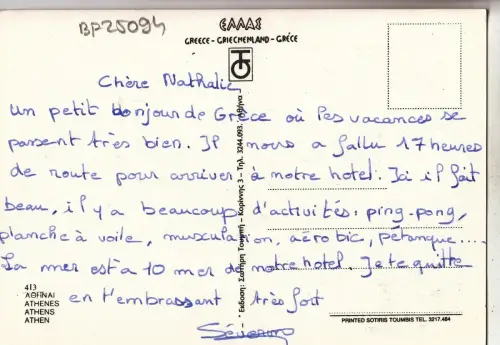 BP25094
ΕΛΛΑΣ
GREECE - GRIECHENLAND - GRÉCE
Chère Nathalie
Un petit bonjour de Grèce où les vacances se
passent très bien. Il nous a fallu 17 heures
de route pour arriver à notre hotel. Ici il fait
beau, il y a beaucoup d'activités: ping-pong,
planche à voile, musculation, aérobic, pétanque....
La mer est à 10 mer de notre hotel. Je te quitte
en t'embrassant très fort
Séverine
Εκδοση: Σωτήρη Τουμπή - Κορίννης 3 - Τηλ. 3244.093. Αθήνα
413
ΑΘΗΝΑΙ
ATHENES
ATHENS
ATHEN
PRINTED SOTIRIS TOUMBIS TEL. 3217.484